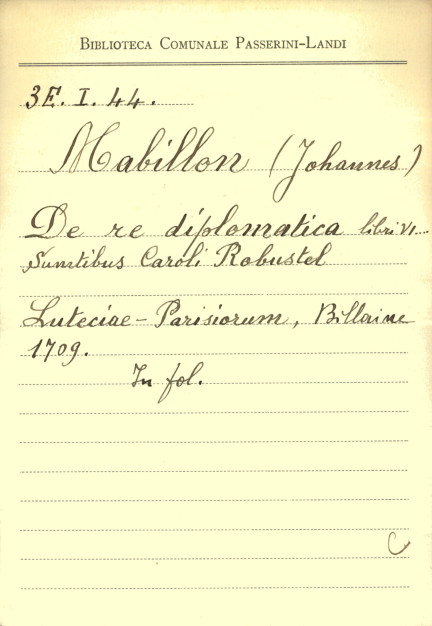 BIBLIOTECA COMUNALE PASSERINI-LANDI
3E. I. 44.
Mabillon (Johannes)
De re diplomatica libri VI.
Sumtibus Caroli Robustel
Luteciae - Parisiorum, Billaine
1709.
In fol.
C